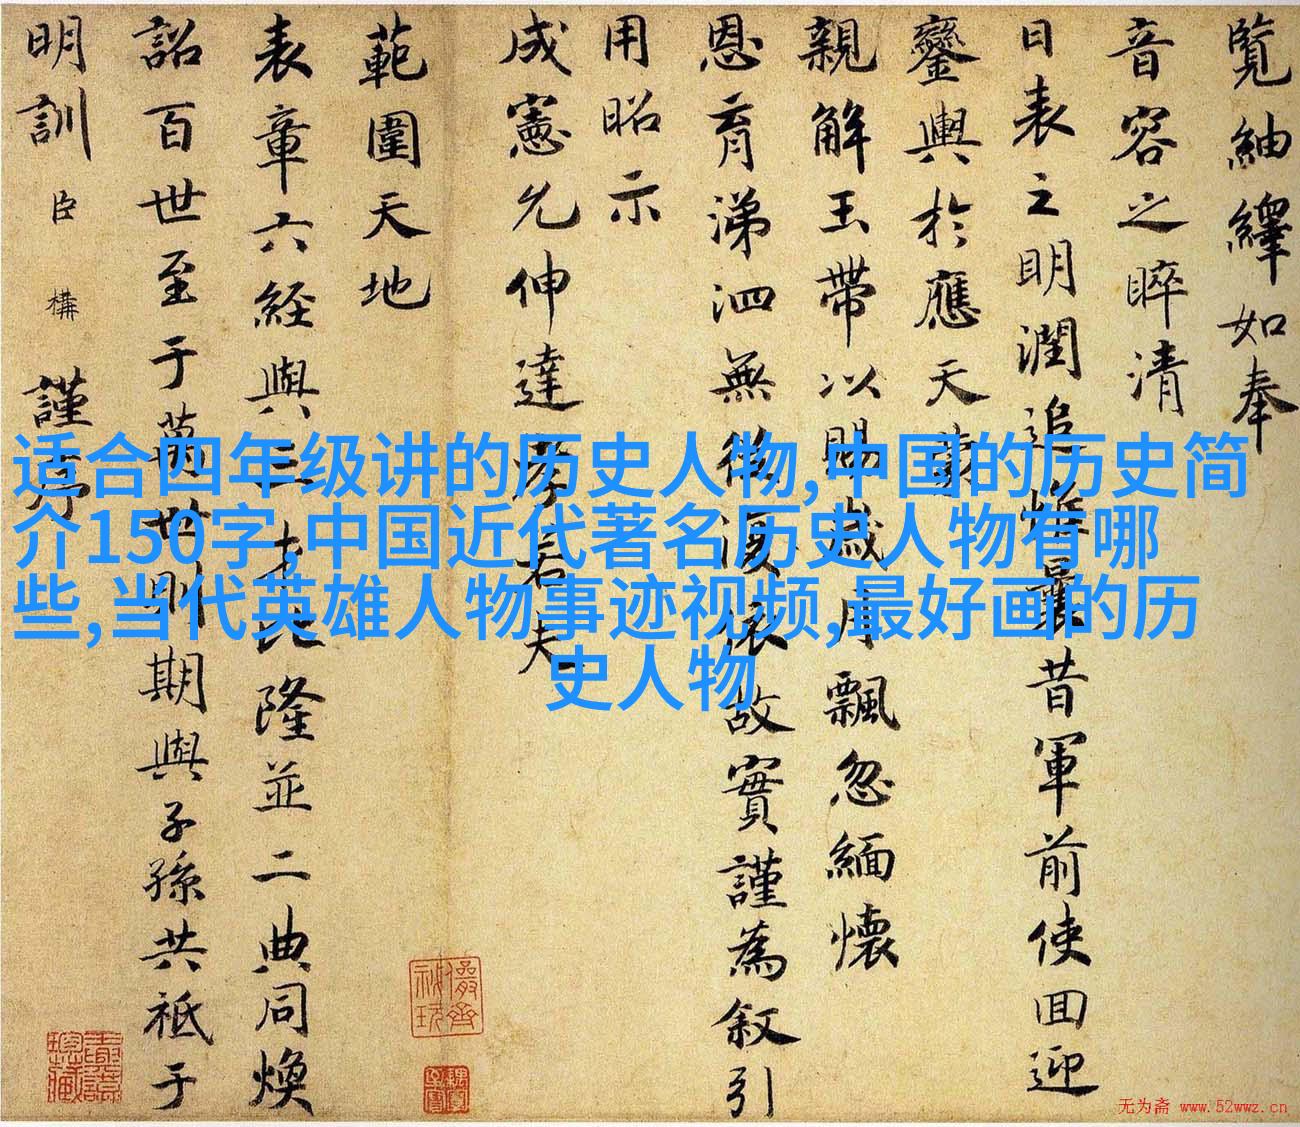 覧紬繹如奉
音容之睟清
日表之明潤追惟曩昔軍前使回迎
鑾輿於應天
親解玉帶以賜歲月飄忽緬懷
恩育涕泗無從復依故實謹為叙引
用昭示
成憲允伸達孝若夫
範圍天地
表章六經與三
隆並二典同煥
詔百世至于萬世則
期與子孫共祗于
明訓臣構謹序
适合四年级讲的历史人物,中国的历史简
介150字,中国近代著名历史人物有哪
些,当代英雄人物事迹视频,最好画的历
史人物
无为斋 www.52wwz.cn